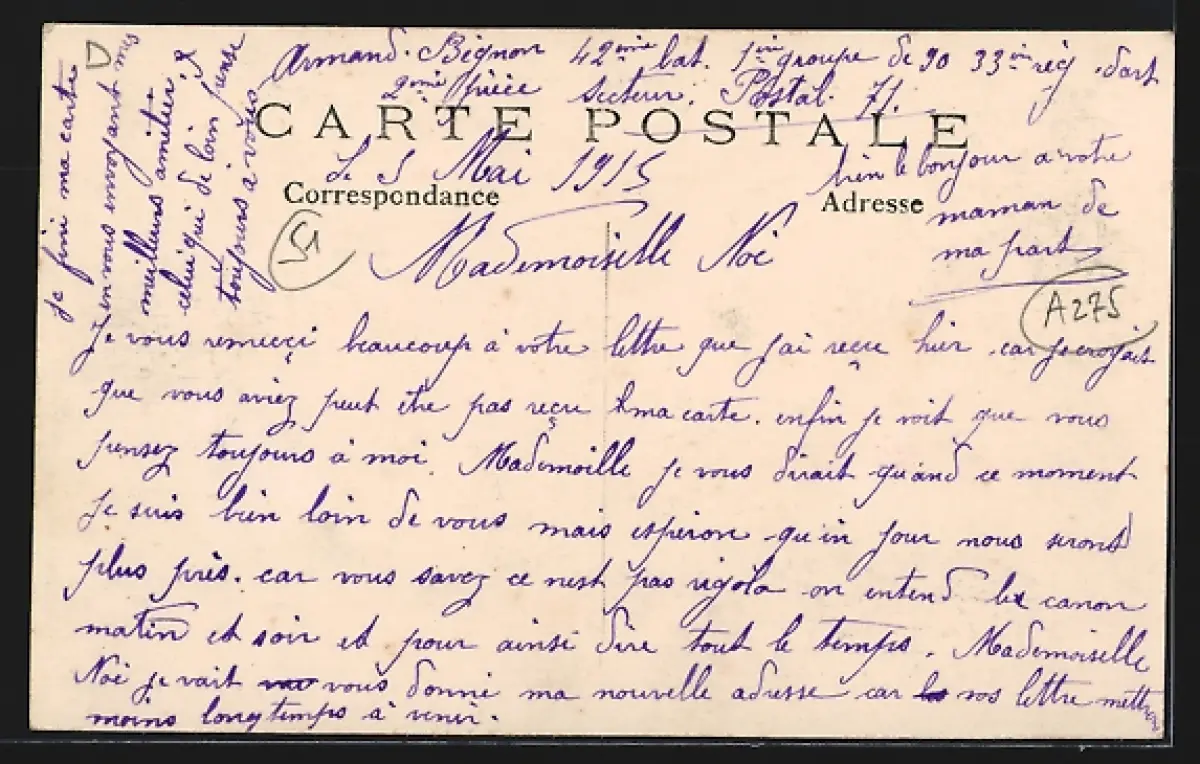 Armand. Bignon 42ème bat. 1ère groupe de 90 33ème rég d'art
2ème pièce Secteur. Postal. 71.
CARTE POSTALE
Le 5 Mai 1915
Correspondance
Adresse
bien le bonjour a votre
maman de
ma part
51
A275
Mademoiselle Noë
Je vous remerçi beaucoup à votre lettre que j'ai reçu hier. car je croyait
que vous aviez peut être pas reçu ma carte. enfin je voit que vous
pensez toujours à moi. Mademoille je vous dirait quand ce moment
je suis bien loin de vous mais espéron qu'in jour nous seront
plus près. car vous savez ce nest pas rigola on entend le canon
matin et soir et pour ainsi dire tout le temps. Mademoiselle
Noë je vait vous donné ma nouvelle adresse car vos lettre mettrons
moins longtemps à venir.
je fini ma carte
en vous envoyant mes
meilleurs amitiés
celui qui de loin pense
toujours a vous